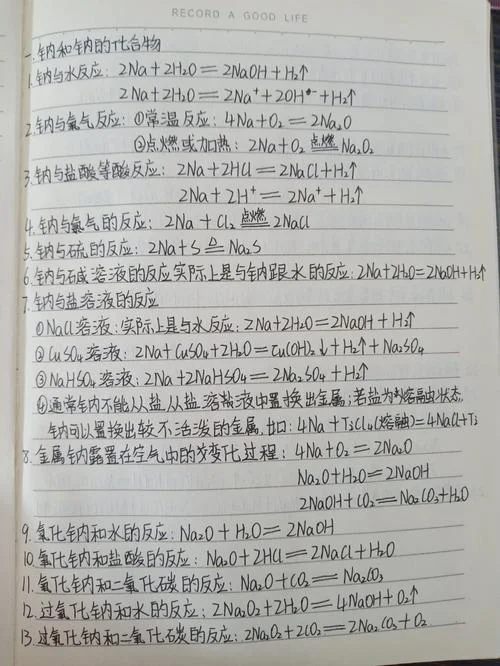 RECORD A GOOD LIFE
一.钠和钠的化合物
1.钠与水反应：2Na+2H₂O=2NaOH+H₂↑
2Na+2H₂O=2Na⁺+2OH⁻+H₂↑
2.钠与氧气反应：①常温反应：4Na+O₂=2Na₂O
②点燃或加热：2Na+O₂ 点燃 Na₂O₂
3.钠与盐酸等酸反应：2Na+2HCl=2NaCl+H₂↑
2Na+2H⁺=2Na⁺+H₂↑
4.钠与氯气的反应：2Na+Cl₂ 点燃 2NaCl
5.钠与硫的反应：2Na+S △ Na₂S
6.钠与碱溶液的反应实际上是与钠跟水的反应：2Na+2H₂O=2NaOH+H₂↑
7.钠与盐溶液的反应
①NaCl溶液：实际上是与水反应：2Na+2H₂O=2NaOH+H₂↑
②CuSO₄溶液：2Na+CuSO₄+2H₂O=Cu(OH)₂↓+H₂↑+Na₂SO₄
③NaHSO₄溶液：2Na+2NaHSO₄=2Na₂SO₄+H₂↑
④通常钠不能从盐从盐溶盐液中置换出金属；若盐为熔融状态，
钠可以置换出较不活泼的金属.如：4Na+TiCl₄(熔融)=4NaCl+Ti
8.金属钠露置在空气中的变化过程：4Na+O₂=2Na₂O
Na₂O+H₂O=2NaOH
2NaOH+CO₂=Na₂CO₃+H₂O
9.氧化钠和水的反应：Na₂O+H₂O=2NaOH
10.氧化钠和盐酸的反应：Na₂O+2HCl=2NaCl+H₂O
11.氧化钠和二氧化碳的反应：Na₂O+CO₂=Na₂CO₃
12.过氧化钠和水的反应：2Na₂O₂+2H₂O=4NaOH+O₂↑
13.过氧化钠和二氧化碳的反应：2Na₂O₂+2CO₂=2Na₂CO₃+O₂